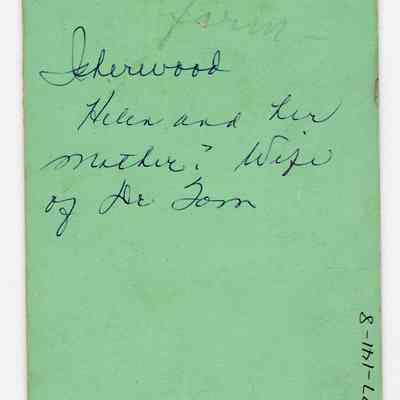 farm
Isherwood
Helen and her
Mother? Wife
of Dr Tom
7-141-8